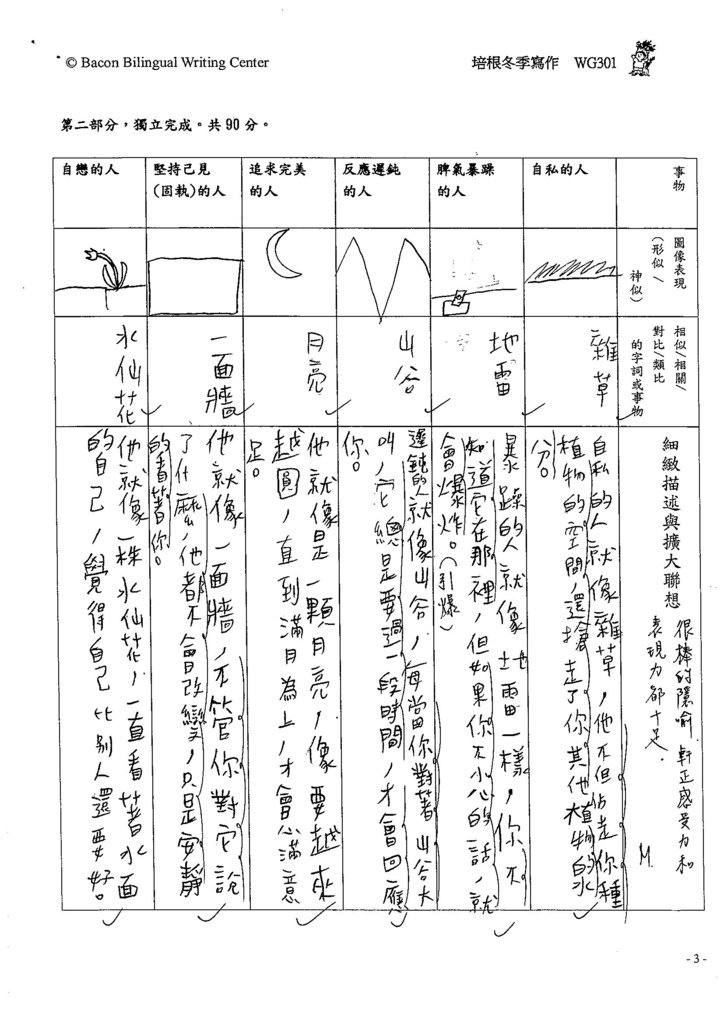 © Bacon Bilingual Writing Center
培根冬季寫作 WG301
第二部分，獨立完成。共 90 分。
事物
自私的人
脾氣暴躁
的人
反應遲鈍
的人
追求完美
的人
堅持己見
(固執)的人
自戀的人
圖像表現
(形似/
神似)
相似/相關/
對比/類比
的字詞或事物
雜草
地雷
山谷
月亮
一面牆
水仙花
細緻描述與擴大聯想
很棒的隱喻，軒正感受力和
表現力都十足．
M.
自私的人就像雜草，他不但佔走你種
植物的空間，還搶走了你其他植物的水
分。
暴躁的人就像地雷一樣，你不
知道它在那裡，但如果你不小心的話，就
會爆炸。(引爆)
遲鈍的人就像山谷，每當你對著山谷大
叫，它總是要過一段時間，才會回應
你。
他就像是一顆月亮，像要越來
越圓，直到滿月為上，才會心滿意
足。
他就像一面牆，不管你對它說
了什麼，他都不會改變，只是安靜
的看著你。
他就像一株水仙花，一直看著水面
的自己，覺得自己比別人還要好。
- 3 -